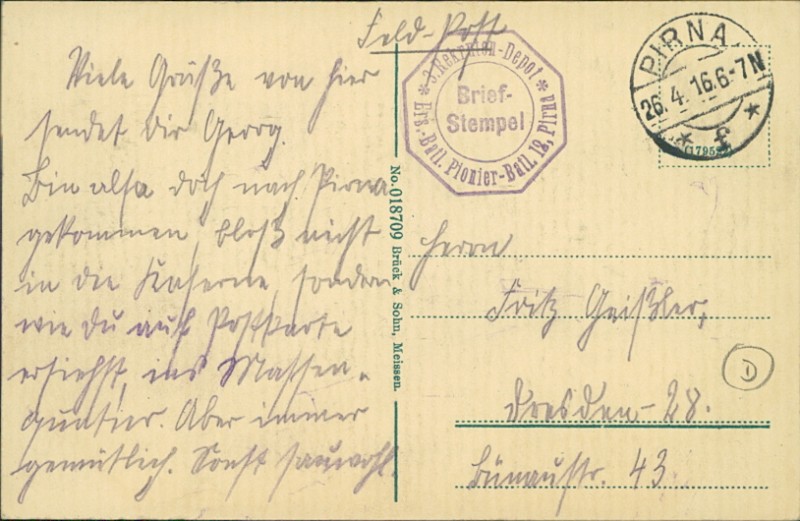 Feld-Post
Viele Grüße von hier
sendet Dir Georg.
Bin also doch nach Pirna
gekommen, bloß nicht
in die Kaserne, sondern
wie Du auf Postkarte
ersiehst, ins Massen-
quartier. Aber immer
gemütlich. Sonst sauwohl.
* 3. Rekruten-Depot *
Ers.-Batl. Pionier-Batl. 12, Pirna
Brief-
Stempel
PIRNA
26.4.16.6-7N
* f *
No. 018709 Brück & Sohn, Meissen.
Herrn
Fritz Geißler,
Dresden-28.
Bünaustr. 43
D